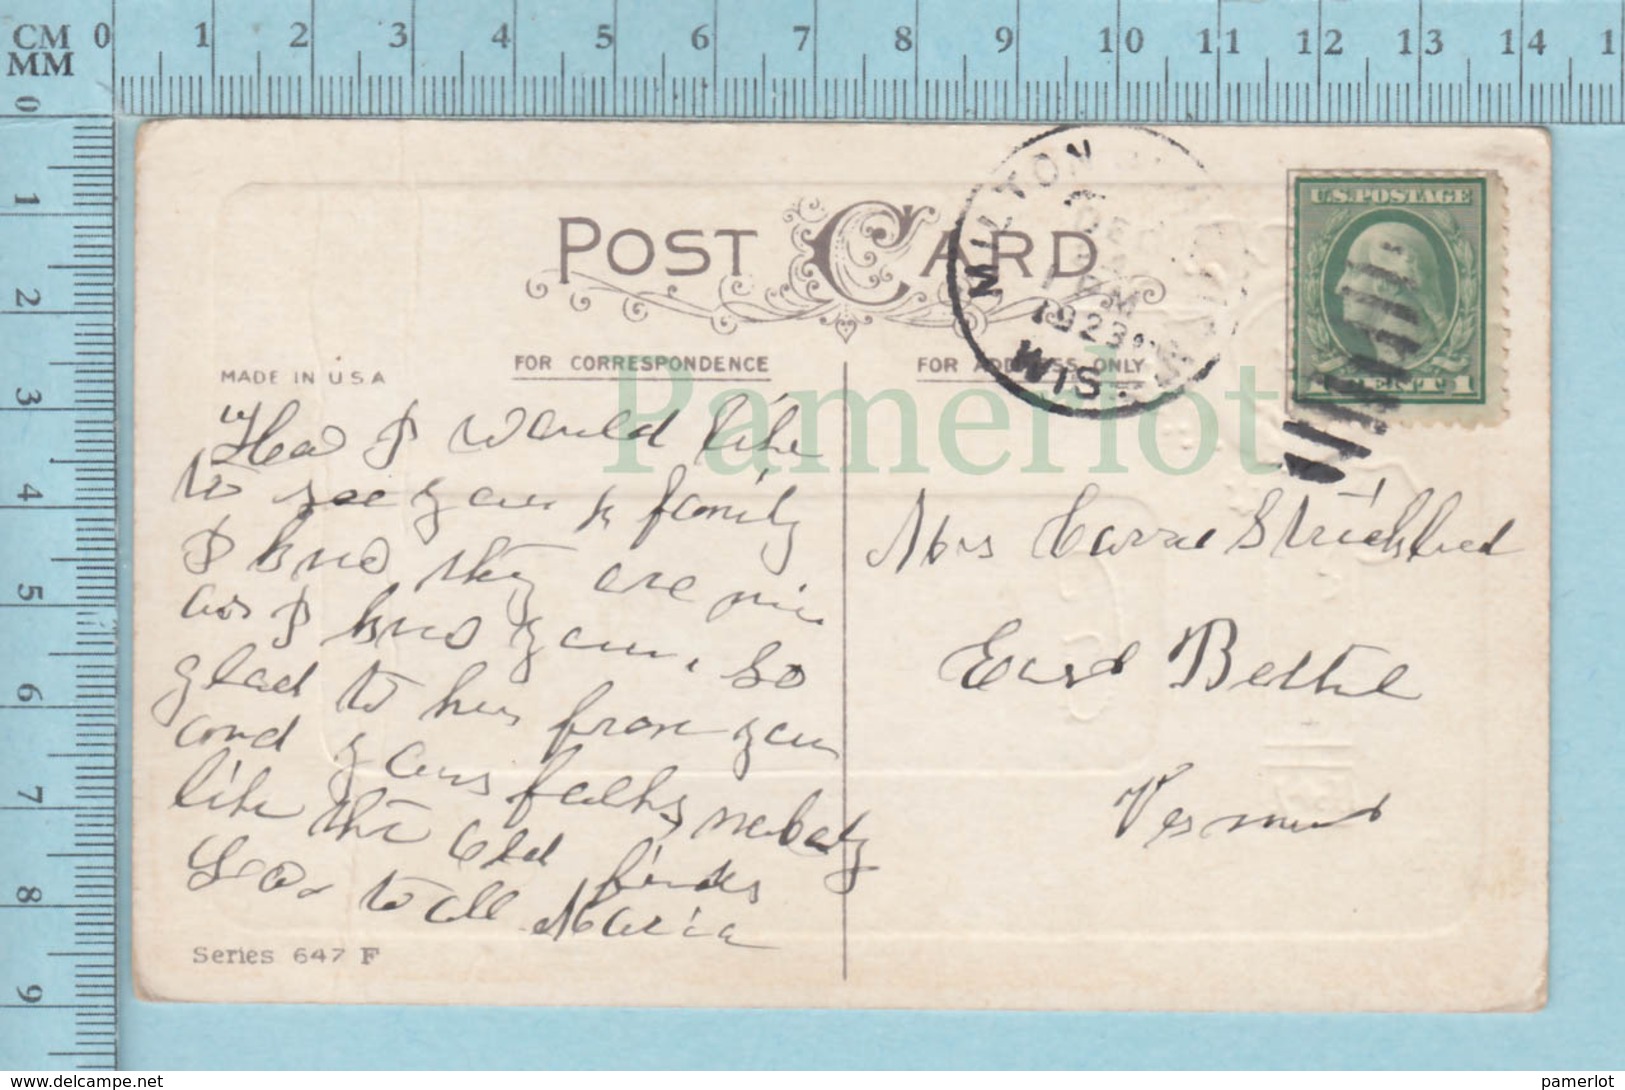 CM 0 1 2 3 4 5 6 7 8 9 10 11 12 13 14 1
MM
0 1 2 3 4 5 6 7 8 9
POST CARD
MILTON
DEC
PM
1923
WIS.
U.S. POSTAGE
1 CENT 1
MADE IN U S A
FOR CORRESPONDENCE
FOR ADDRESS ONLY
Pamerlot
How I would like
to see you & family
I know they are nice
as I know you. So
glad to hear from you
and your folks, nobody
like the old friends
Love to all Maria
Mrs Carrie Strickland
East Bethel
Vermont
Series 647 F
www.delcampe.net
pamerlot